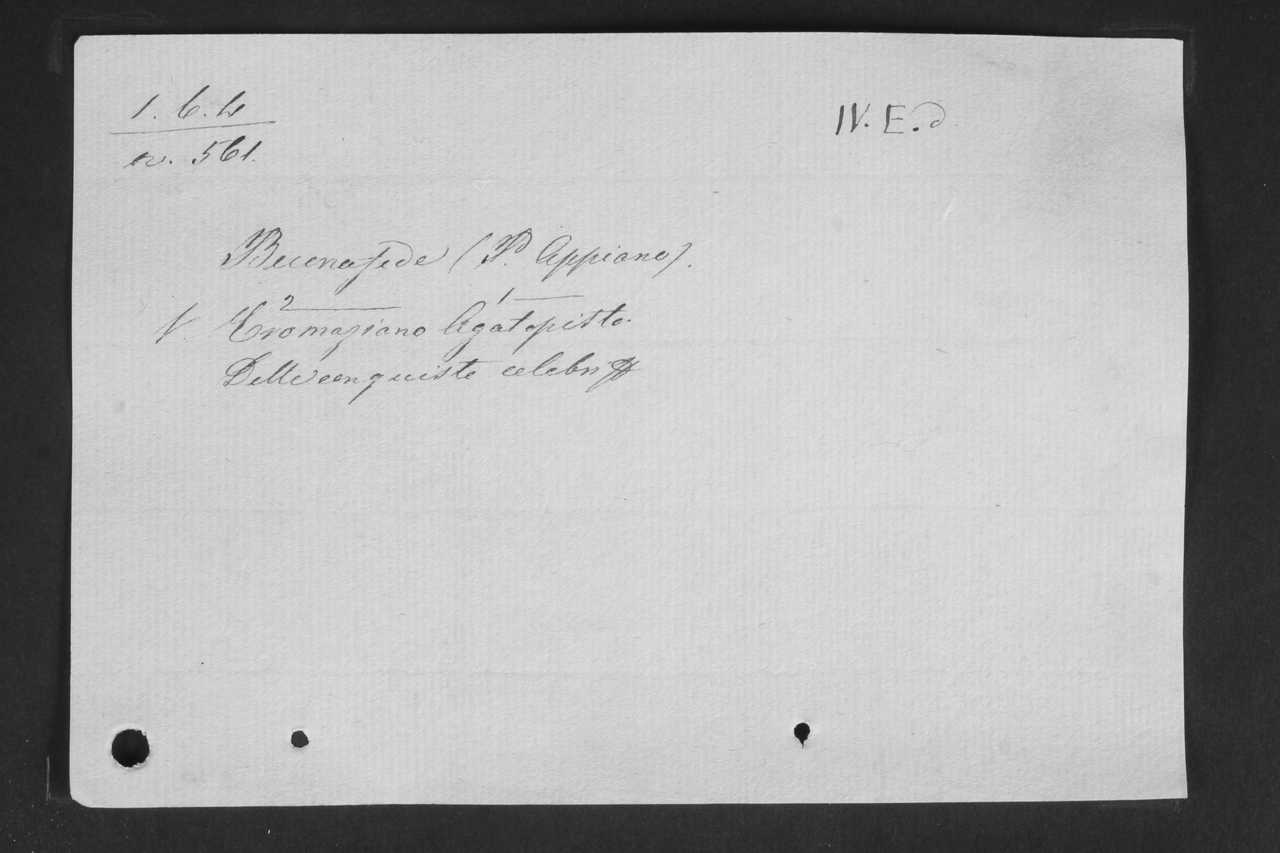 1. 6. 4
n. 561.
IV. E. d
Buonafede (P. Appiano).
2 1
V. Cromaziano Agatopisto.
Delle conquiste celebri